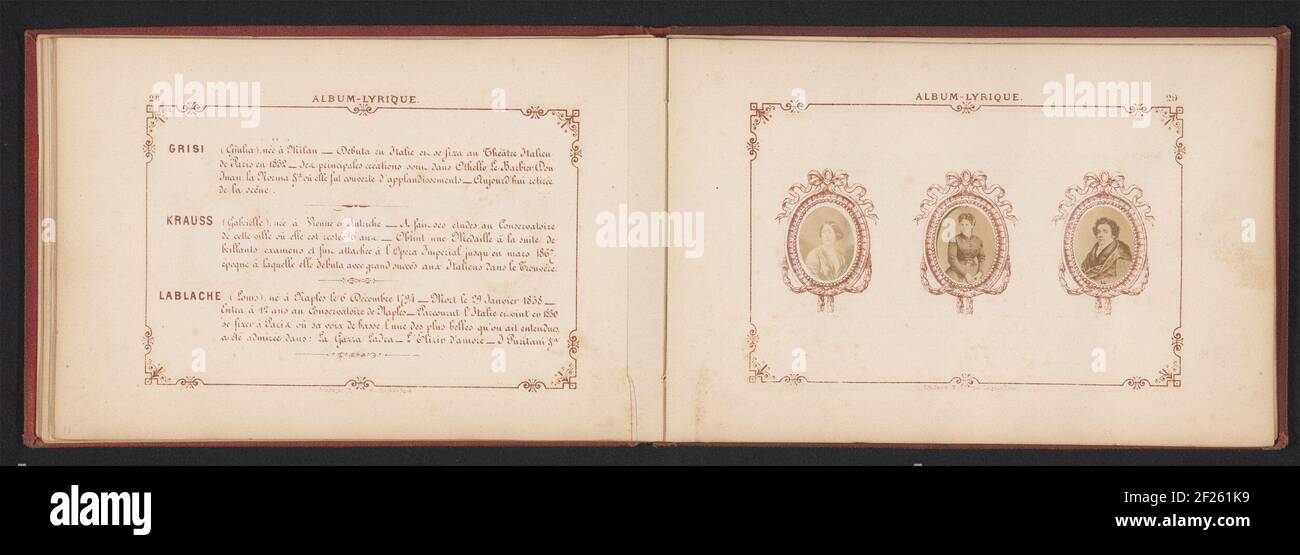 28
ALBUM-LYRIQUE.
GRISI (Giulia), née à Milan — Débuta en Italie et se fixa au Théâtre Italien
de Paris en 1832 — Ses principales créations sont dans Othello, Le Barbier, Don
Juan, la Norma &a où elle fut couverte d'applaudissements — Aujourd'hui retirée
de la scène.
KRAUSS (Gabrielle), née à Vienne en Autriche — A fait ses études au Conservatoire
de cette ville où elle est restée 6 ans — Obtint une Médaille à la suite de
brillants examens et fut attachée à l'Opéra Impérial jusqu'en mars 1867
époque à laquelle elle débuta avec grand succès aux Italiens dans le Trouvère.
LABLACHE (Louis), né à Naples le 6 Décembre 1794 — Mort le 29 Janvier 1858 —
Entra à 12 ans au Conservatoire de Naples — Parcourut l'Italie et vint en 1830
se fixer à Paris où sa voix de basse, l'une des plus belles qu'on ait entendues
a été admirée dans: La Gazza Ladra — L'Elixir d'amore — I Puritani &a
ALBUM-LYRIQUE.
29
a
alamy
Image ID: 2F261K9
www.alamy.com